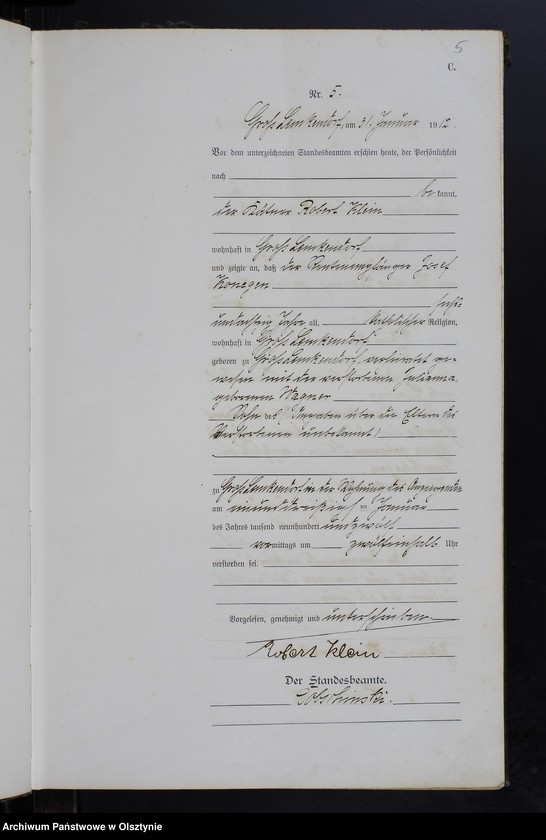 5
C.
Nr. 5.
Groß Lemkendorf, am 31. Januar 1912.
Vor dem unterzeichneten Standesbeamten erschien heute, der Persönlichkeit
nach
be kannt,
der Kätner Robert Klein
wohnhaft in Groß Lemkendorf
und zeigte an, daß der Rentenempfänger Josef
Konegen
sechs
undachtzig Jahre alt, katholischer Religion,
wohnhaft in Groß Lemkendorf
geboren zu Groß Lemkendorf, verheiratet ge-
wesen mit der verstorbenen Julianna
geborenen Wagner
Sohn des (Angaben über die Eltern des
Verstorbenen unbekannt)
zu Groß Lemkendorf in der Wohnung des Anzeigenden
am einunddreißigsten Januar
des Jahres tausend neunhundert und zwölf
vormittags um zwölfeinhalb Uhr
verstorben sei.
Vorgelesen, genehmigt und unterschrieben.
Robert Klein
Der Standesbeamte.
Archiwum Państwowe w Olsztynie